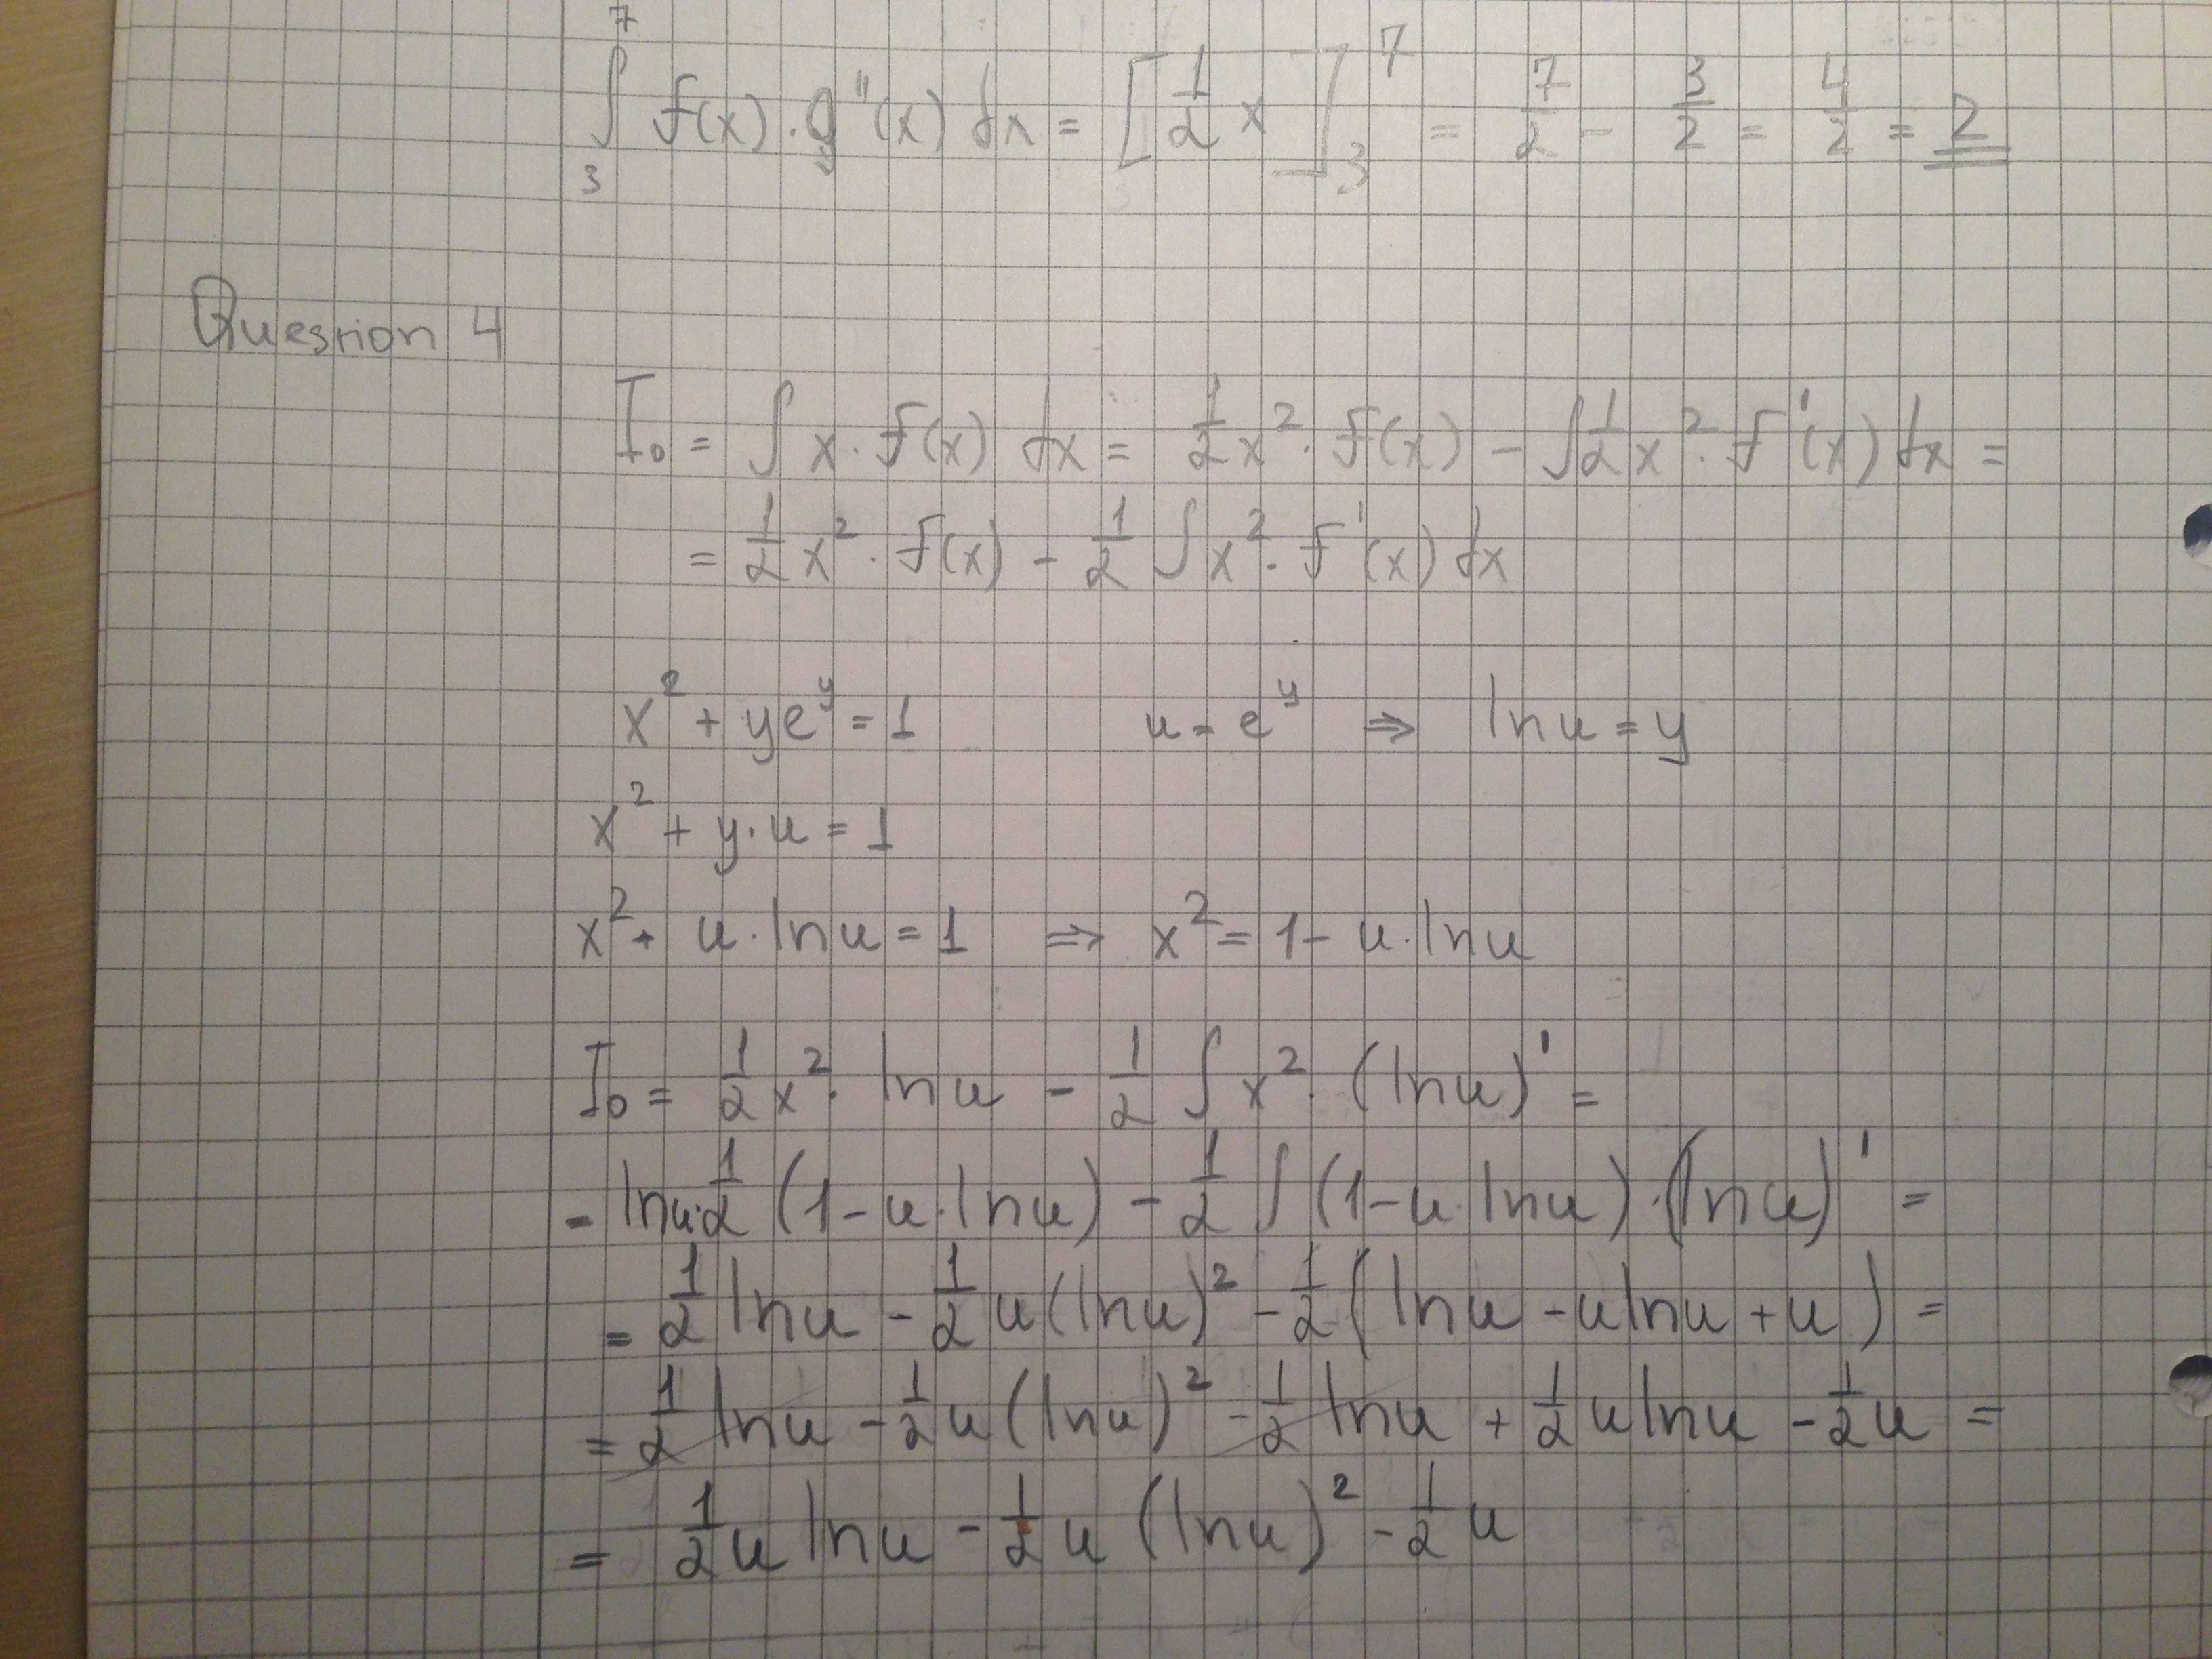 ∫₃⁷ f(x) · g''(x) dx = [1/2 x]₃⁷ = 7/2 - 3/2 = 4/2 = 2
Question 4
I₀ = ∫ x · f(x) dx = 1/2 x² · f(x) - ∫ 1/2 x² · f'(x) dx =
= 1/2 x² · f(x) - 1/2 ∫ x² · f'(x) dx
x² + ye^y = 1 u = e^y ⇒ ln u = y
x² + y · u = 1
x² + u · ln u = 1 ⇒ x² = 1 - u · ln u
I₀ = 1/2 x² · ln u - 1/2 ∫ x² · (ln u)' =
= ln u · 1/2 (1 - u · ln u) - 1/2 ∫ (1 - u · ln u) · (ln u)' =
= 1/2 ln u - 1/2 u (ln u)² - 1/2 (ln u - u ln u + u) =
= 1/2 ln u - 1/2 u (ln u)² - 1/2 ln u + 1/2 u ln u - 1/2 u =
= 1/2 u ln u - 1/2 u (ln u)² - 1/2 u